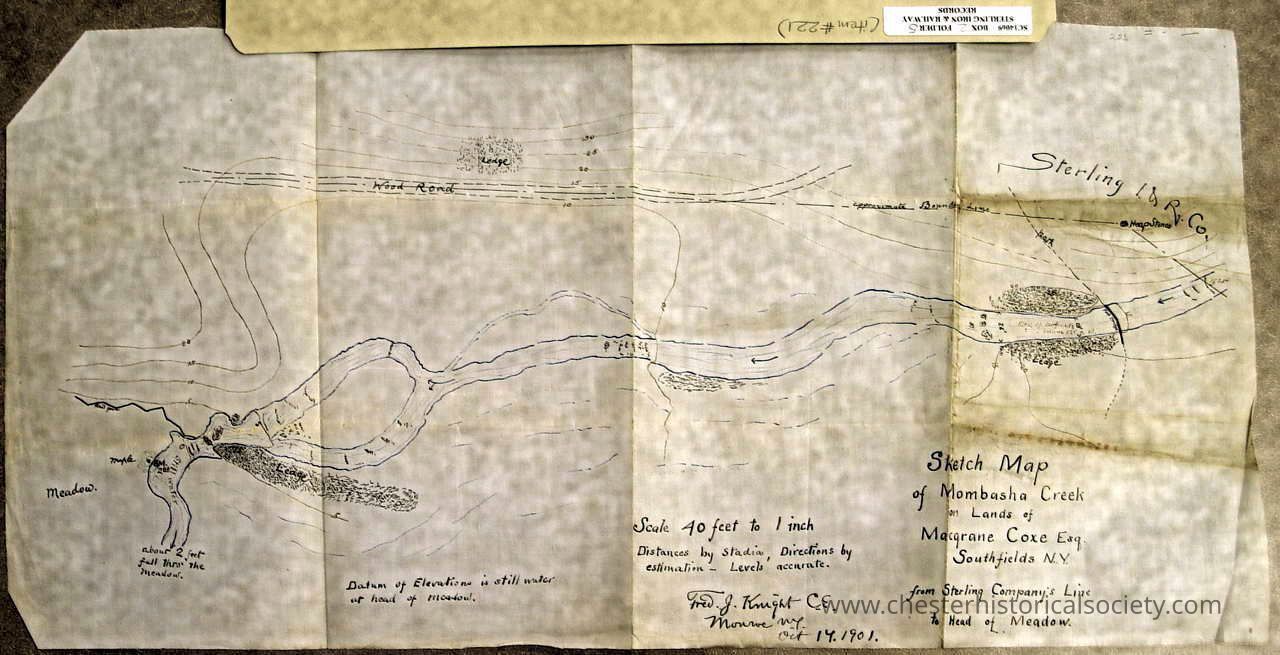 SC14068 BOX 2 FOLDER 5
STERLING IRON & RAILWAY
RECORDS
(item #221)
Sterling I & Ry. Co.
Ledge
30
25
20
Wood Road
15
10
approximate Boundry Line
Heap Stones
Ledge
Ledge
Maple
Meadow.
about 2 feet
fall thro' the
meadow.
Datum of Elevations is still water
at head of meadow.
Scale 40 feet to 1 inch
Distances by Stadia, Directions by
estimation – Levels accurate.
Fred. J. Knight C.E.
Monroe N.Y.
Oct 14. 1901.
Sketch Map
of Mombasha Creek
on Lands of
Macgrane Coxe Esq.
Southfields N.Y.
from Sterling Company's Line
to Head of Meadow.
www.chesterhistoricalsociety.com